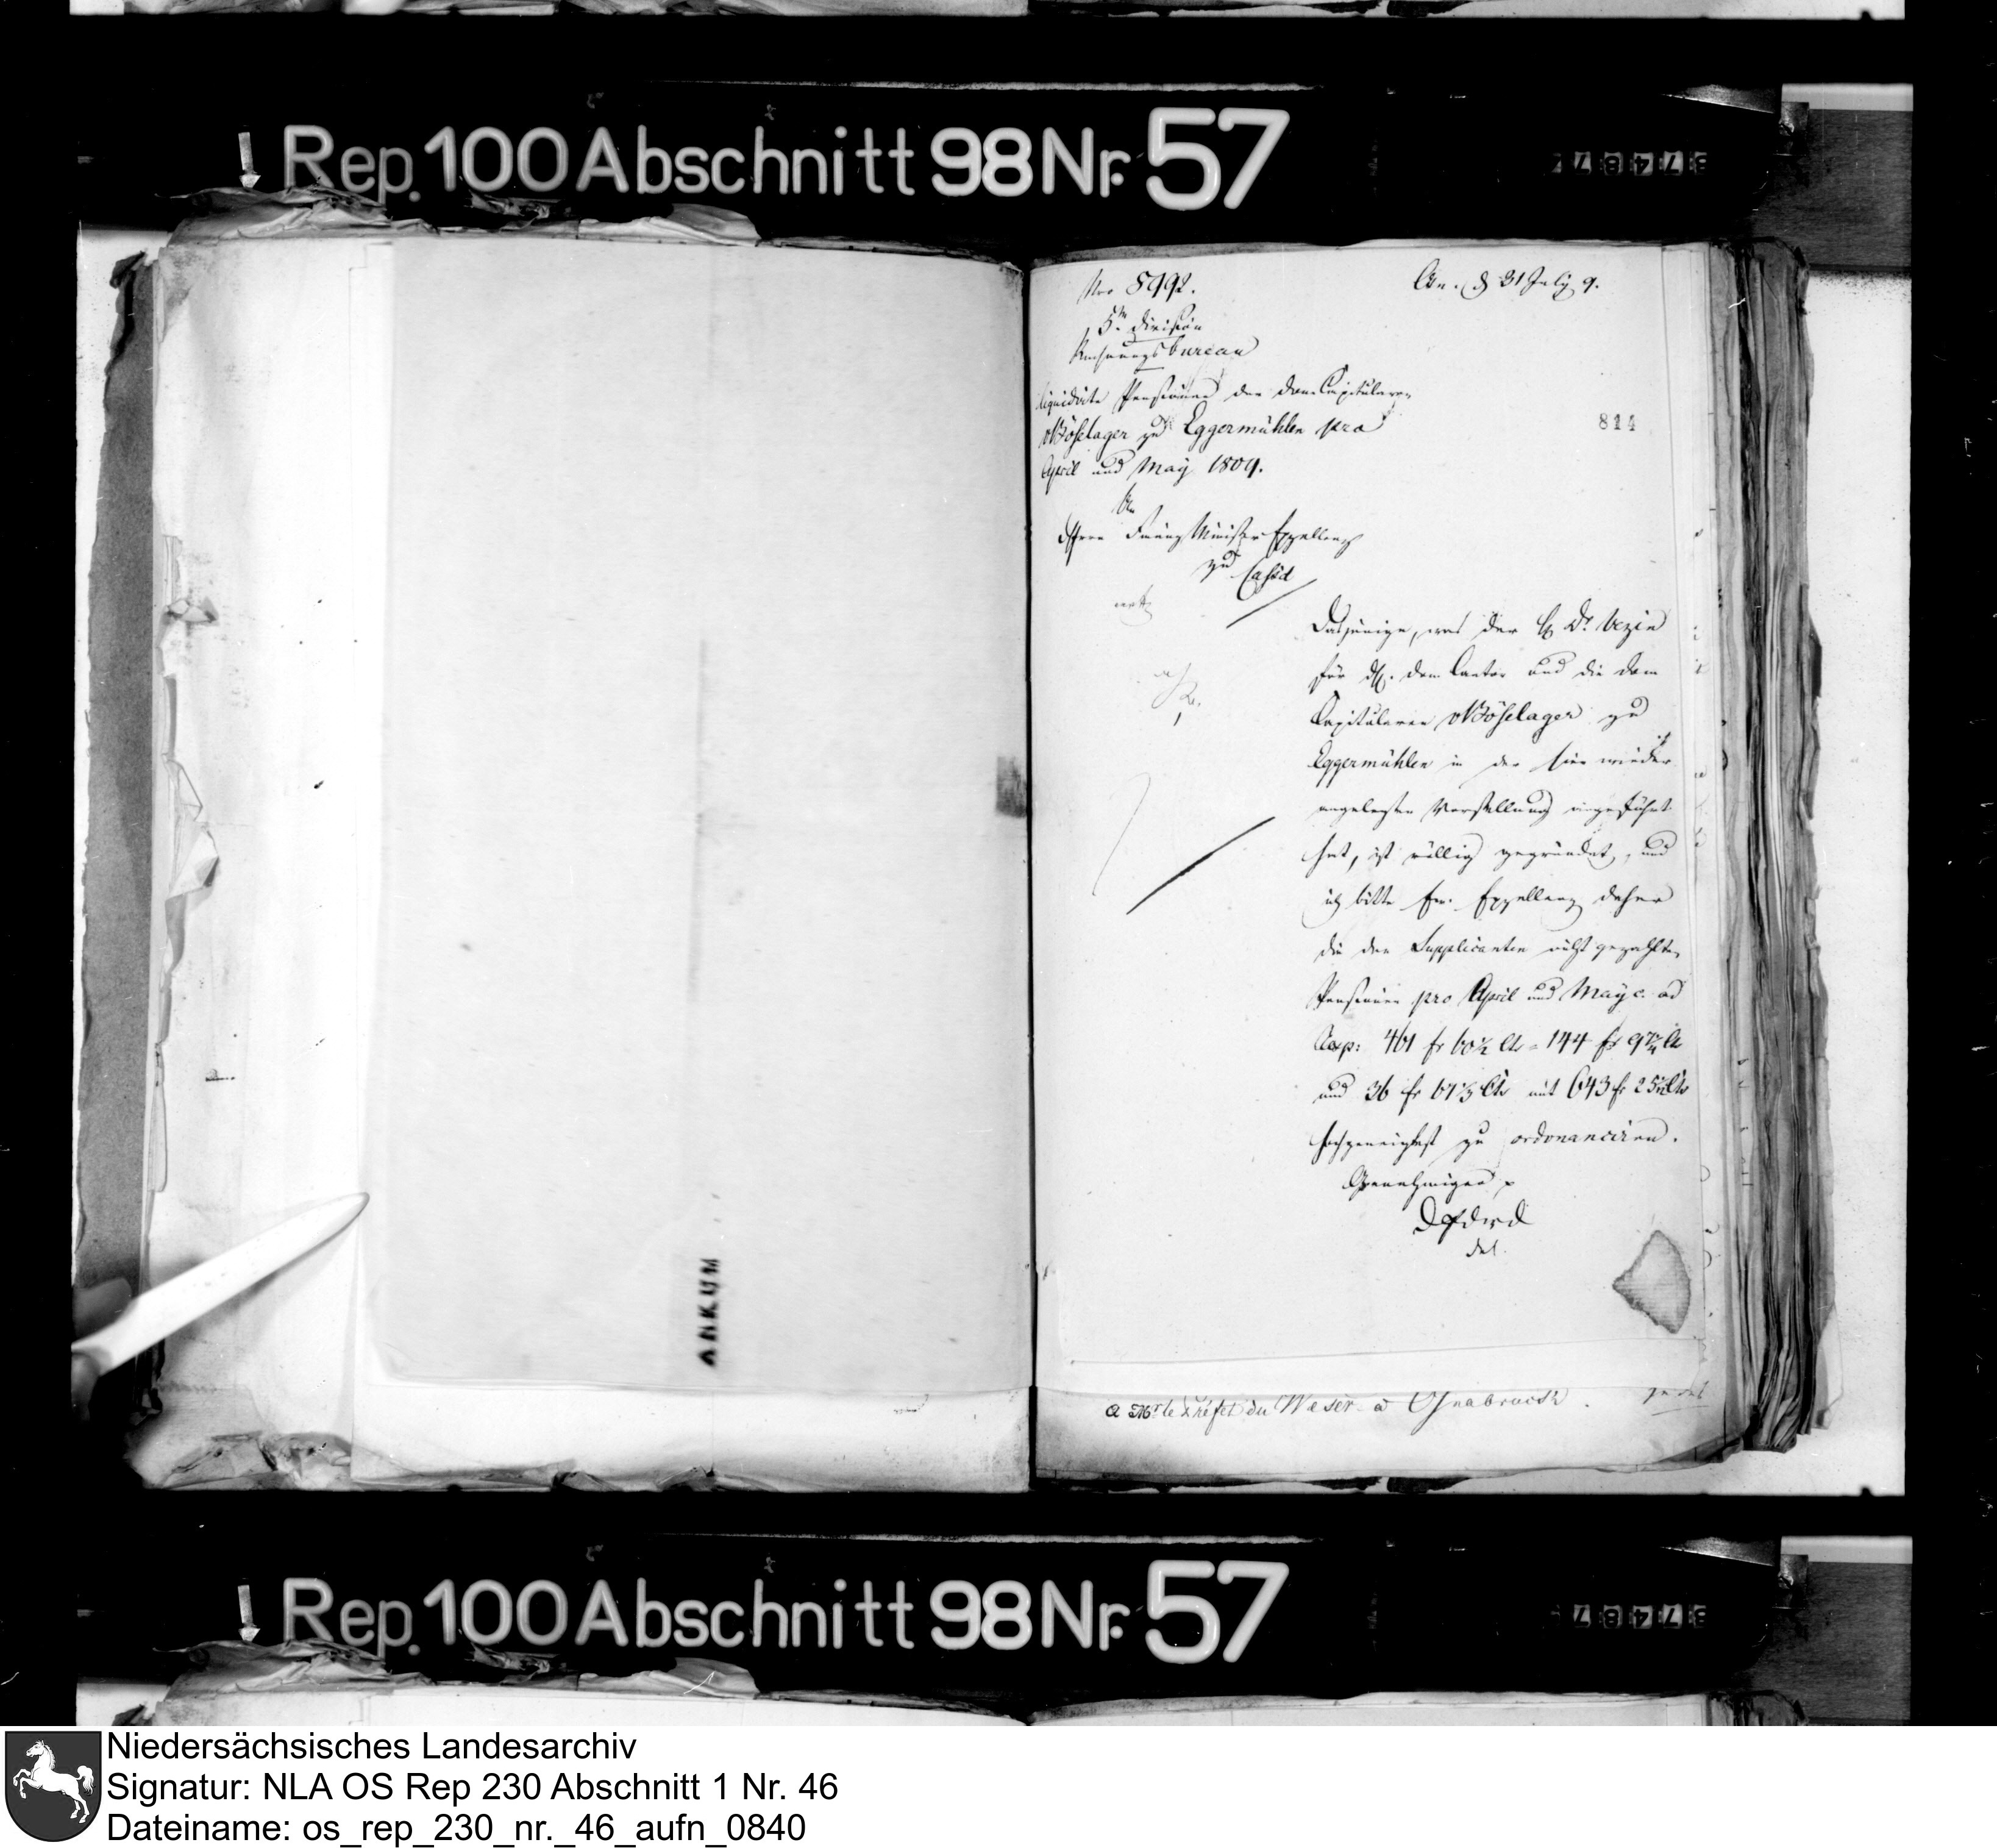 Rep. 100 Abschnitt 98 Nr. 57
Nro 8992.
Osn. d 31 July 9.
5te Division
Rechnungsbureau
liquidirte Pensionen der DomCapitularen
vBöselager zu Eggermühlen pro
April und May 1809.
814
An
des Herrn Finanz Minister Exzellenz
zu Cassel
Dasjenige, was der H. Dr. Vezin
für d. H. dem Cantor und die Dom
Capitularen vBöselager zu
Eggermühlen in der hier wieder
angelegten Vorstellung angeführt
hat, ist völlig gegründet, und
ich bitte Ew. Exzellenz daher
die den Supplicanten nicht gezahlten
Pensionen pro April und May c. ad
resp: 461 fr 60½ Cts = 144 fr
und 36 fr 67⅓ Cts mit 643 fr
hochgeneigtest zu ordonanciren.
Genehmigen p
DHdWD
del.
ANKUM
a Mr. le Préfet du Weser a Osnabruck.
Rep. 100 Abschnitt 98 Nr. 57
Niedersächsisches Landesarchiv
Signatur: NLA OS Rep 230 Abschnitt 1 Nr. 46
Dateiname: os_rep_230_nr._46_aufn_0840